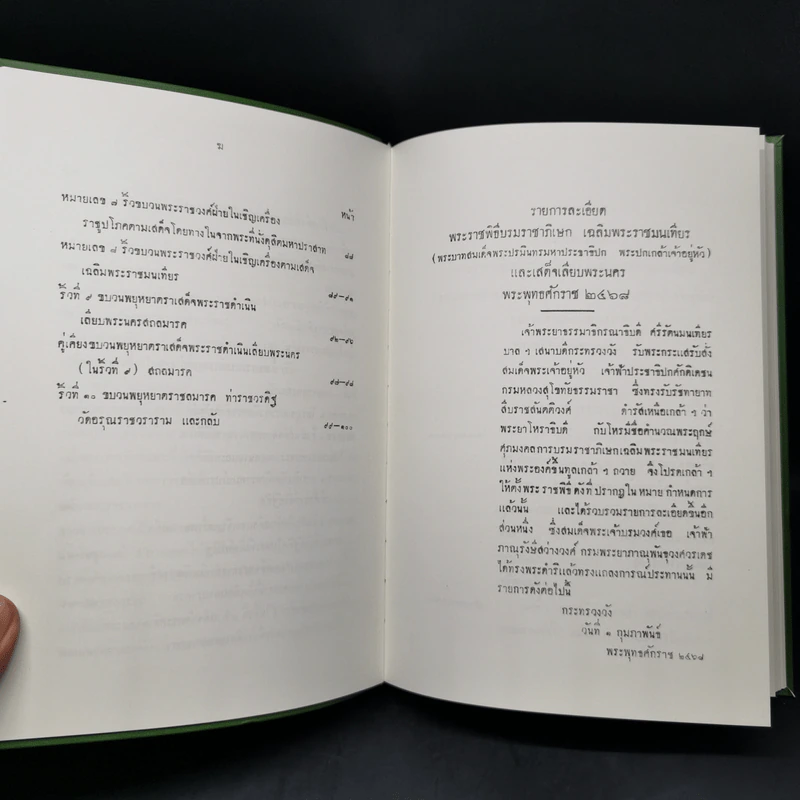 ฆ
หน้า
หมายเลข ๗ ริ้วขบวนพระราชวงศ์ฝ่ายในเชิญเครื่อง
ราชูปโภคตามเสด็จโดยทางในจากพระที่นั่งดุสิตมหาปราสาท ๘๘
หมายเลข ๘ ริ้วขบวนพระราชวงศ์ฝ่ายในเชิญเครื่องตามเสด็จ
เฉลิมพระราชมนเทียร
ริ้วที่ ๙ ขบวนพยุหยาตราเสด็จพระราชดำเนิน ๘๙—๙๑
เลียบพระนครสถลมารค
คู่เคียงขบวนพยุหยาตราเสด็จพระราชดำเนินเลียบพระนคร ๙๒—๙๖
(ในริ้วที่ ๙) สถลมารค
ริ้วที่ ๑๐ ขบวนพยุหยาตราชลมารค ท่าราชวรดิฐ
วัดอรุณราชวราราม และกลับ ๙๙—๑๐๐
รายการละเอียด
พระราชพิธีบรมราชาภิเษก เฉลิมพระราชมนเทียร
(พระบาทสมเด็จพระปรมินทรมหาประชาธิปก พระปกเกล้าเจ้าอยู่หัว)
และเสด็จเลียบพระนคร
พระพุทธศักราช ๒๔๖๘
เจ้าพระยาธรรมาธิกรณาธิบดี ศรีรัตนมนเทียร
บาล ฯ เสนาบดีกระทรวงวัง รับพระกระแสรับสั่ง
สมเด็จพระเจ้าอยู่หัว เจ้าฟ้าประชาธิปกศักดิเดชน
กรมหลวงสุโขทัยธรรมราชา ซึ่งทรงรับรัชทายาท
สืบราชสันตติวงศ์ ดำรัสเหนือเกล้า ฯ ว่า
พระยาโหราธิบดี กับโหรมีชื่อคำนวณพระฤกษ์
ศุภมงคลการบรมราชาภิเษกเฉลิมพระราชมนเทียร
แห่งพระองค์ขึ้นทูลเกล้า ฯ ถวาย จึงโปรดเกล้า ฯ
ให้ตั้งพระราชพิธี ดังที่ปรากฏในหมายกำหนดการ
แล้วนั้น และได้รวบรวมรายการละเอียดขึ้นอีก
ส่วนหนึ่ง ซึ่งสมเด็จพระเจ้าบรมวงศ์เธอ เจ้าฟ้า
ภาณุรังษีสว่างวงศ์ กรมพระยาภาณุพันธุวงศ์วรเดช
ได้ทรงพระดำริแล้วทรงแถลงการณ์ประทานนั้น มี
รายการดังต่อไปนี้
กระทรวงวัง
วันที่ ๑ กุมภาพันธ์
พระพุทธศักราช ๒๔๖๘